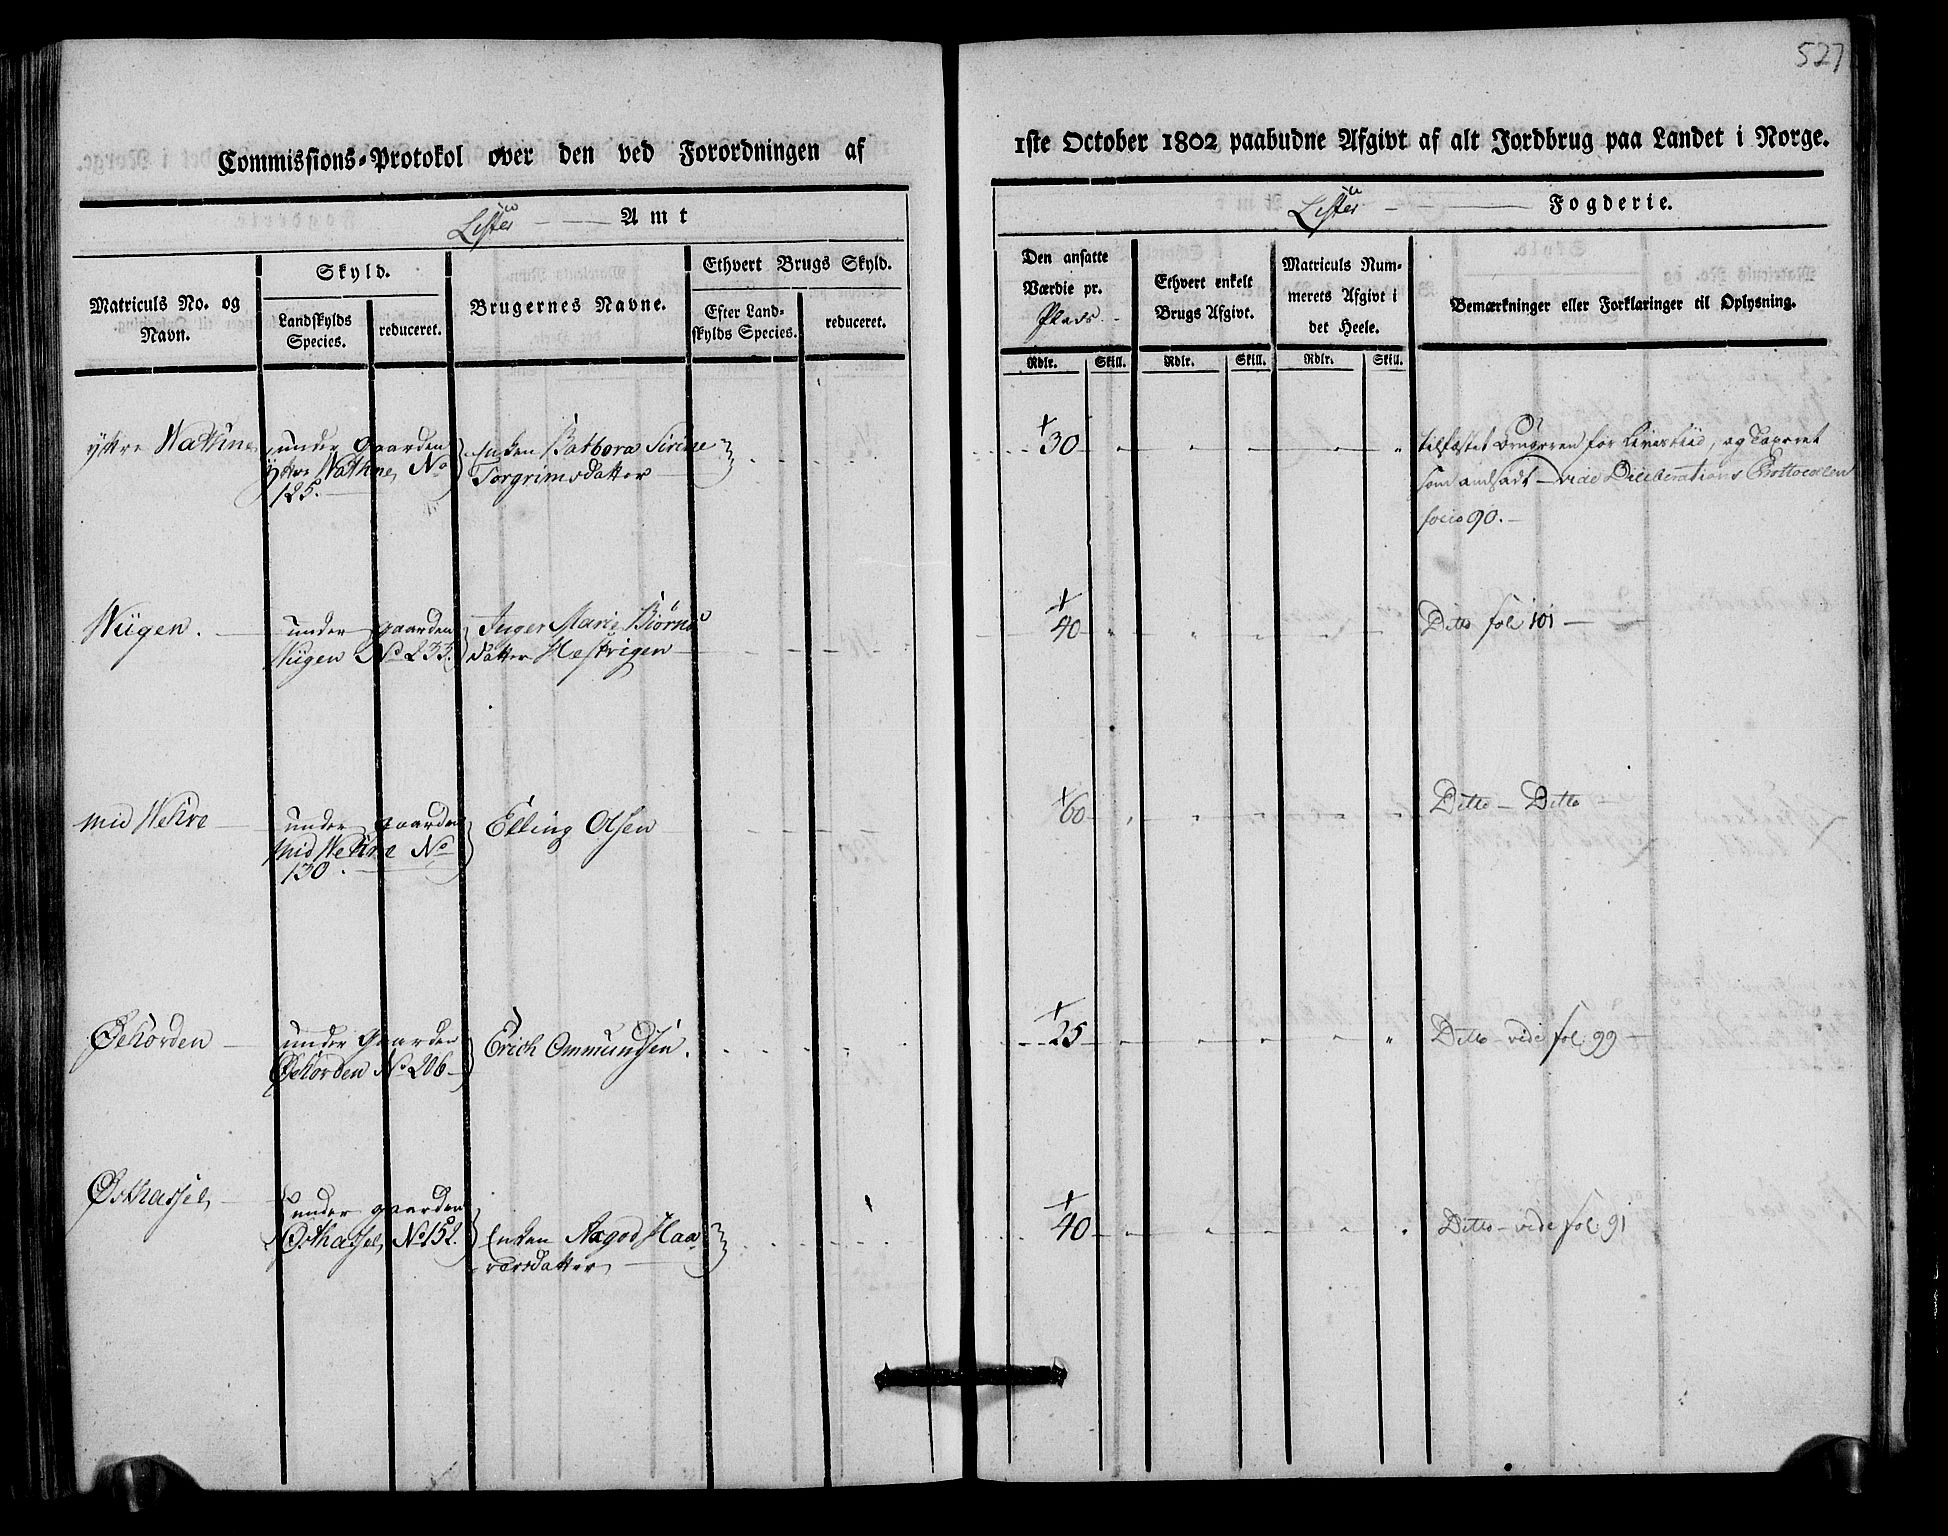 527
Commissions-Protokol over den ved Forordningen af
1ste October 1802 paabudne Afgivt af alt Jordbrug paa Landet i Norge.
Lister Amt
Lister Fogderie.
Matriculs No. og
Navn.
Skyld.
Landskylds
Species.
reduceret.
Brugernes Navne.
Ethvert Brugs Skyld.
Efter Land-
skylds Species.
reduceret.
Den ansatte
Værdie pr.
Plads
Rdlr. Skill.
Ethvert enkelt
Brugs Afgivt.
Rdlr. Skill.
Matriculs Num-
merets Afgivt i
det Heele.
Rdlr. Skill.
Bemærkninger eller Forklaringer til Oplysning.
ÿttre Nathne
under Gaarden
Ÿttre Nathne No
125.
Enken Barbora Sirine
Torgrimsdatter
30
tilfæstet Brugeren for Livstiid, og Taxeret
som andsadt - vide Deliberations Prottocolen
folio 90.
Niigen.
under gaarden
Niigen No 233.
Inger Marie Biørns
datter Hæstrigen
40
Ditto fol 101
mid Wehre
under gaarden
mid Wehre No
130.
Elling Olsen
60
Ditto - Ditto
Øehorden
under Gaarden
Øehorden No 206
Erich Ommundsen.
25
Ditto - vide fol. 99
Østhassel
under gaarden
Østhassel No 152.
Enken Aagod Haa
varsdatter
40
Ditto - vide fol. 91